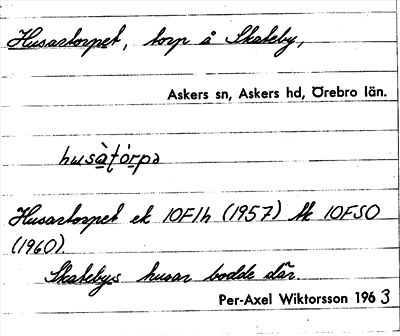 Husartorpet, torp å Skateby,
Askers sn, Askers hd, Örebro län.
husàţórpə
Husartorpet ek 10F1h (1957) tk 10F5O
(1960)
Skatebys husar bodde där.
Per-Axel Wiktorsson 1963